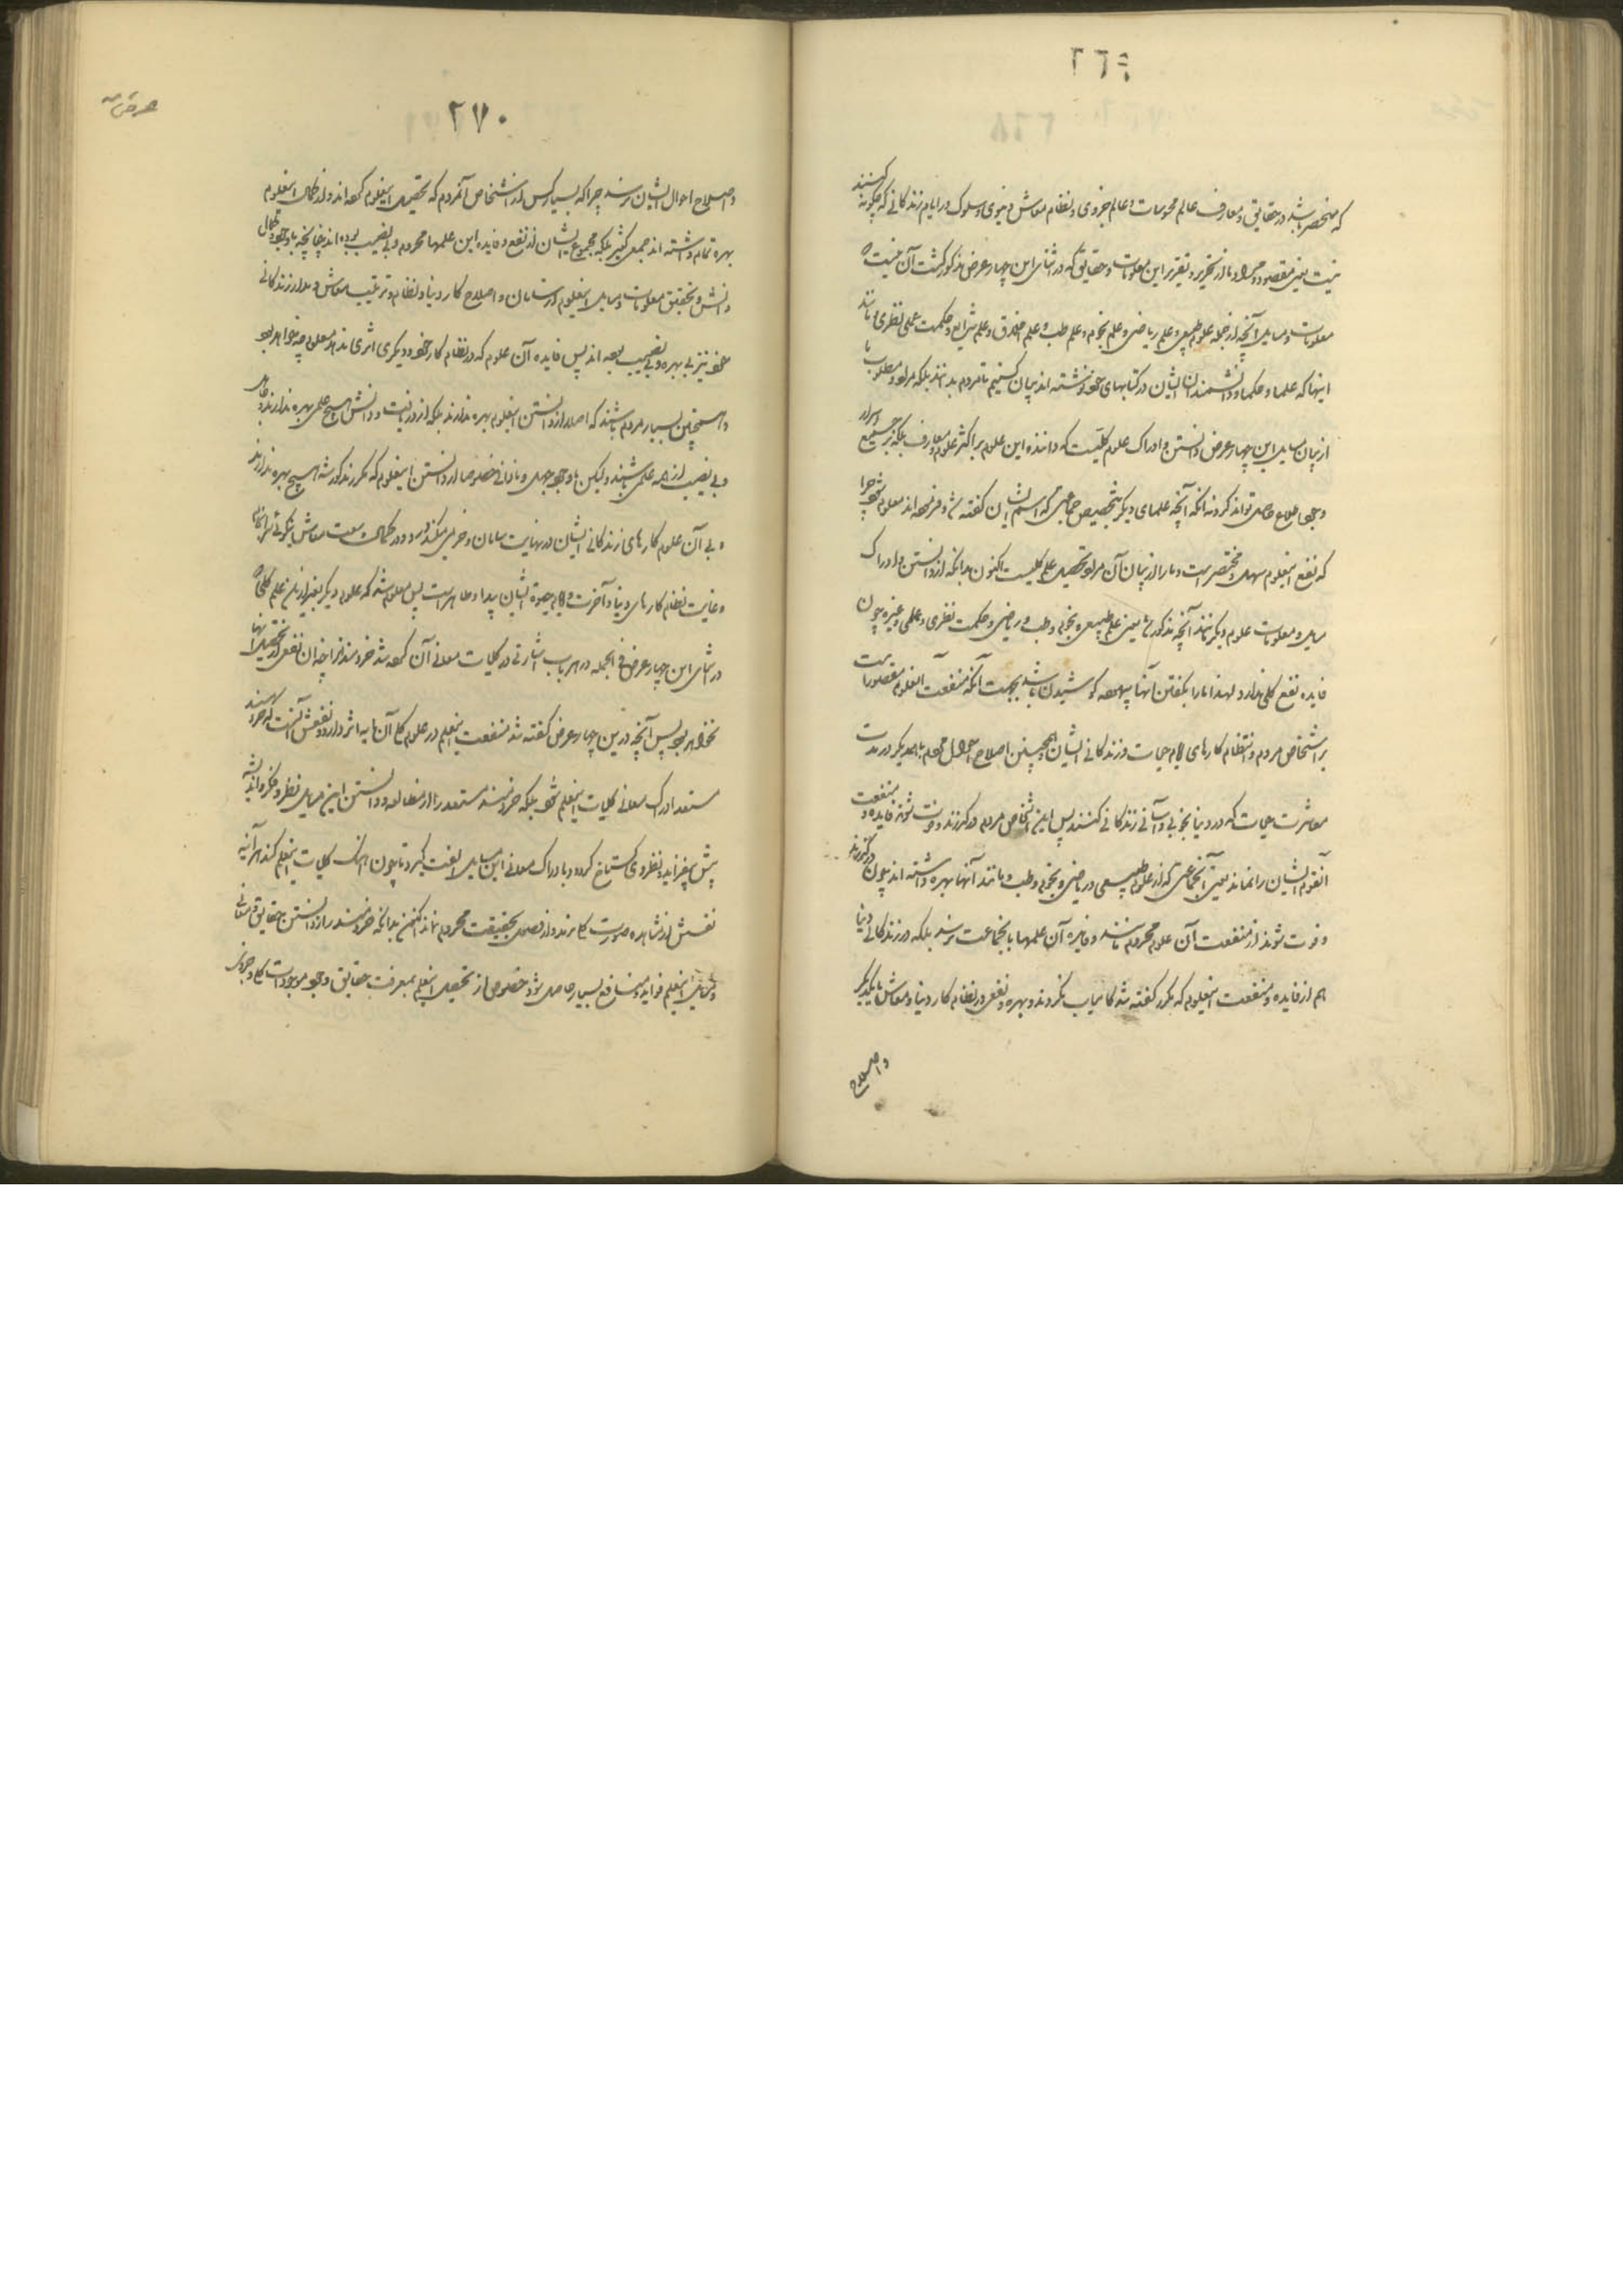 ۲۶۹
که منحصر باشد در حقایق و معارف عالم محسوسات و عالم جزوی و نظام معاش دنیوی و سلوک در ایام زندکانی که چکونه کنند
نیست یعنی مقصود و مراد ما از تحریر و تقریر این معلومات و حقایق که در اثنای این چهار عرض مذکور کشت آن نیست که
معلومات و مسایل آنچه از جمله علوم طبیعی و علم ریاضی و علم نجوم و علم طب و علم اخلاق و علم شرایع و حکمت عملی و نظری و مانند
اینها که علما و حکما و دانشمندان ایشان در کتابهای خود نوشته اند بیان کنیم تا مردم بدانند بلکه مراد و مطلوب ما
از بیان مسایل این چهار عرض دانستن و ادراک علوم کلیست که داننده این علوم بر اکثر علوم و معارف بلکه بر جمیع اسرار
وجود اطلاع حاصل تواند کرد نه انکه آنچه علمای دیکر بتخصیص جماعتی که اسم ایشان کفته شد فرموده اند معلوم شود چرا
که نفع اینعلوم سهل و مختصر است و ما را از بیان آن مراد تحصیل علم کلیست اکنون بدانکه از دانستن و ادراک
مسایل و معلومات علوم دیکر مانند آنچه مذکور شد یعنی علم طبیعی و نجوم و طب و ریاضی و حکمت نظری و عملی و غیره چون
فایده نفع کلی ندارد لهذا ما را بکفتن آنها بیهوده کوشیدن باشد بجهت آنکه منفعت آنعلوم مقصور است
بر اشخاص مردم و انتظام کارهای ایام حیات و زندکانی ایشان و همچنین اصلاح احوال مردم با همدیکر در مدت
معاشرت حیات که در دنیا بخوبی و آسانی زندکانی کنند پس چون این اشخاص مردم درکذرند و فوت شوند فایده و منفعت
آنقوم ایشان را نماند یعنی آنجماعتی که از علوم طبیعی و ریاضی و نجوم و طب و مانند آنها بهره داشته اند چون درکذرند
و فوت شوند از منفعت آن علوم محروم باشند و فایده آن علمها باینجماعت نرسد بلکه در زندکانی دنیا
هم از فایده و منفعت اینعلوم که مکرر کفته شد کامیاب نکردند و بهره و نفعی در نظام کار دنیا و معاش با یکدیکر
و اصلاح
۲۷۰
عرض
و اصلاح احوال ایشان نرسد چرا که بسیار کس از اشخاص آنمردم که تحصیل اینعلوم کرده اند و از کمال اینعلوم
بهره تمام داشته اند جمعی کثیر بلکه مجموع ایشان از نفع و فایده این علمها محروم و بی نصیب بوده اند چنانچه با وجود کمال
دانش و تحقیق معلومات و مسایل اینعلوم از سامان و اصلاح کار دنیا و نظام و ترتیب معاش و مدار زندکانی
خود نیز بی بهره و بی نصیب بوده اند پس فایده آن علوم که در نظام کار خود و دیکری اثری ندهد معلوم چه خواهد بود
و همچنین بسیار مردم باشند که اصلا از دانستن اینعلوم بهره ندارند بلکه از دریافت و دانش هیچ علمی بهره ندارند و جاهل
و بی نصیب از همه علمی باشند ولیکن باوجود جهل و نادانی خصوصا از دانستن اینعلوم که مکرر مذکور شد هیچ بهره ندارند
و بی آن علوم کارهای زندکانی ایشان در نهایت سامان و خرمی میکذرد و در کمال وسعت معاش
و غایت نظام کارهای دنیا و آخرت و ایام حیوة ایشان پیدا و ظاهر است پس معلوم شد که علوم دیکر بغیر از این علم کلی که
در اثنای این چهار عرض فی الجمله در هر باب اشارتی در کلیات معانی آن کرده شد خردمند را چندان نفعی در تحصیل آنها
نخواهد بود پس آنچه درین چهار عرض کفته شد منفعت اینعلم در علوم کلی آن مایه اثر دارد و نفعش آنست که خردمند
مستعد ادراک معانی کلیات اینعلم شود بلکه خردمند مستعد را از مطالعه و دانستن این مسایل نظر و فکر و اندیشه
بیش بیفزاید و نظر وی کستاخ کردد و با دراک معانی این مسایل الفت کیرد تا چون اهنک کلیات اینعلم کند هر آینه
نفسش از مشاهده صورت کلی نرمد و از فصول بحقیقت محروم نماند اکنون بدانکه خردمند را از دانستن حقایق و معانی
و مسایل اینعلم فواید و منافع بسیار حاصل شود خصوص از تحصیل اینعلم بمعرفت حقایق وجود موجودات کلی و جزوی